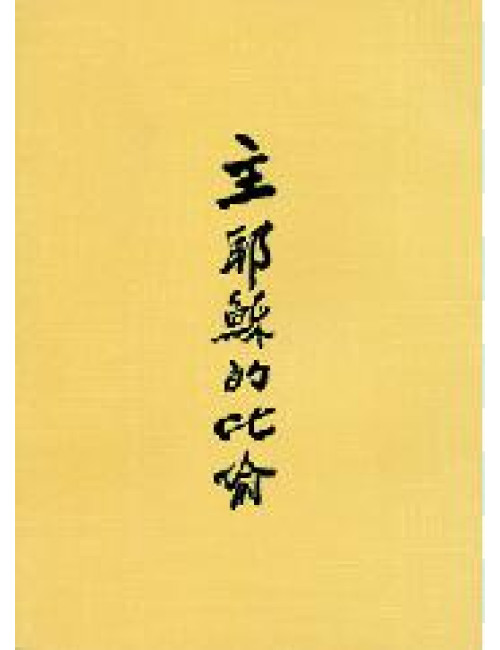 主耶穌的比喻